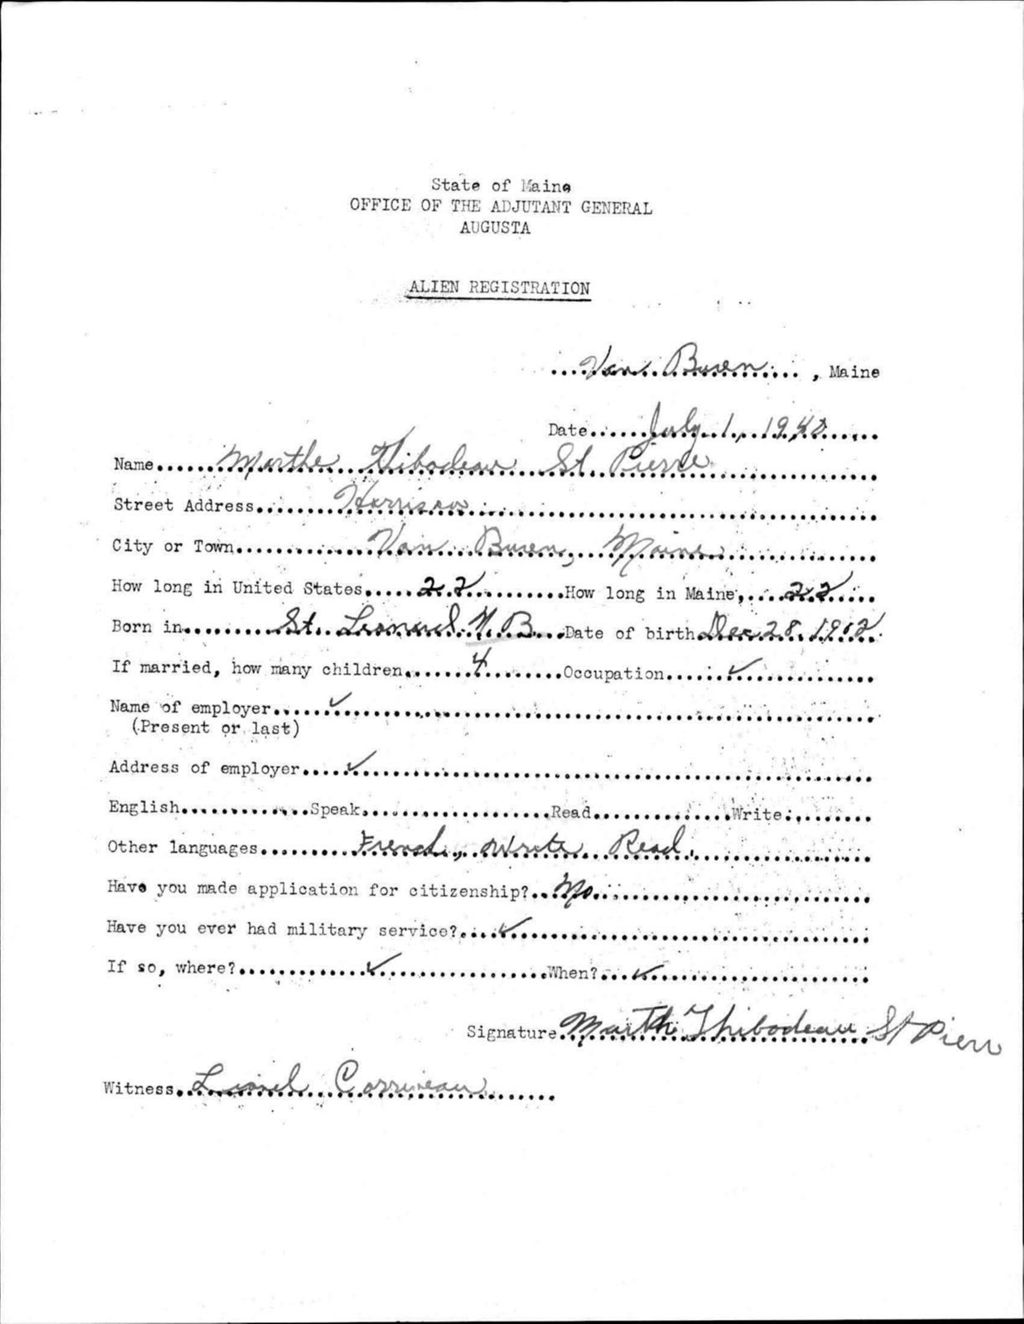 State of Maine
OFFICE OF THE ADJUTANT GENERAL
AUGUSTA
ALIEN REGISTRATION
Van Buren, Maine
Date July 1, 1940
Name Marthe Thibodeau St. Pierre
Street Address Harrison
City or Town Van Buren, Maine
How long in United States 22 How long in Maine, 22
Born in St. Leonard N.B. Date of birth Dec 28, 1912
If married, how many children 4 Occupation ✓
Name of employer ✓
(Present or last)
Address of employer ✓
English Speak Read Write
Other languages French, Write Read.
Have you made application for citizenship? No
Have you ever had military service? ✓
If so, where? ✓ When? ✓
Signature Marth Thibodeau St Pierr
Witness Lionel Corriveau